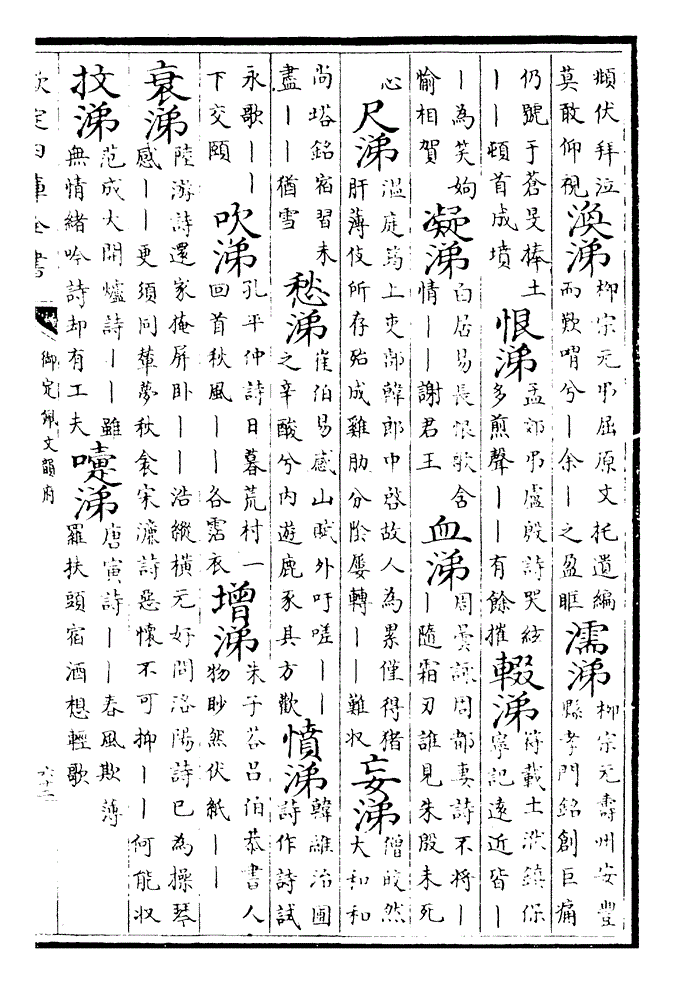 頫伏拜泣
莫敢仰視
渙涕
柳宗元弔屈原文托遺編
而歎喟兮丨余丨之盈眶
濡涕
柳宗元壽州安豐
縣孝門銘創巨痛
仍號于蒼旻捧土
丨丨頓首成墳
恨涕
孟郊弔盧殷詩哭絃
多煎聲丨丨有餘摧
輟涕
符載土洑鎮保
寧記遠近皆丨
丨為笑姁
愉相賀
凝涕
白居易長恨歌含
情丨丨謝君王
血涕
周曇詠周郊妻詩不將丨
丨隨霜刃誰見朱殷未死
心
尺涕
温庭筠上吏部韓郎中啓故人為累僅得猪
肝薄伎所存殆成雞肋分陰屢轉丨丨難收
妄涕
僧皎然
大和和
尚塔銘宿習未
盡丨丨猶雪
愁涕
崔伯易感山賦外吁嗟丨丨
之辛酸兮内遊鹿豕其方歡
憤涕
韓維治圃
詩作詩試
永歌丨丨
下交頤
吹涕
孔平仲詩日暮荒村一
回首秋風丨丨各霑衣
增涕
朱子答呂伯恭書人
物眇然伏紙丨丨
衰涕
陸游詩還家掩屏卧丨丨浩縱横元好問洛陽詩已為操琴
感丨丨更須同輦夢秋衾宋濂詩惡懷不可抑丨丨何能收
抆涕
范成大開爐詩丨丨雖
無情緒吟詩却有工夫
嚏涕
唐寅詩丨丨春風欺薄
羅扶頭宿酒想輕歌
欽定四庫全書
御定佩文韻府